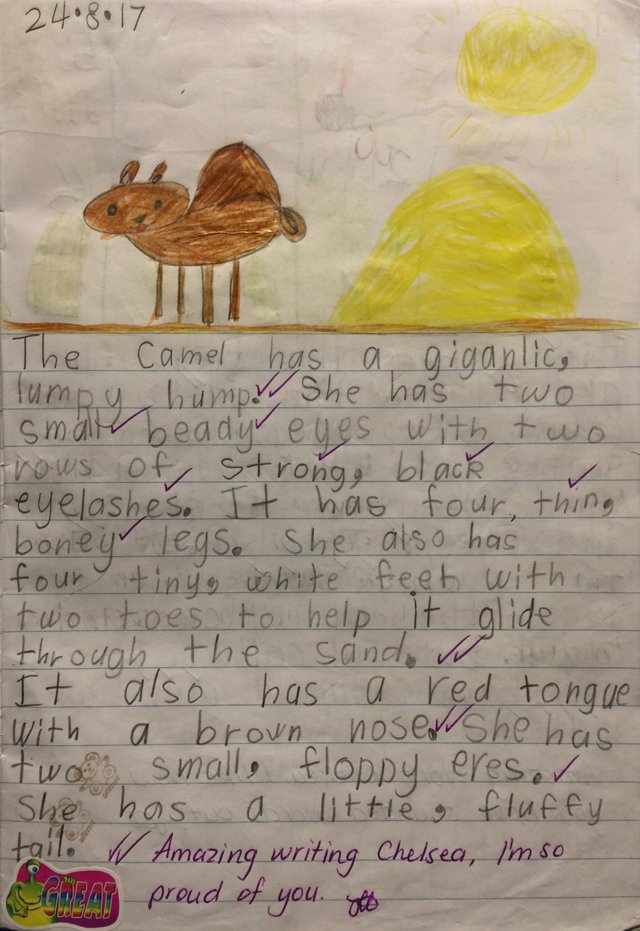 24.8.17
The Camel has a gigantic,
lumpy hump. She has two
small beady eyes with two
rows of strong, black
eyelashes. It has four, thin,
boney legs. She also has
four tiny, white feet with
two toes to help it glide
through the sand.
It also has a red tongue
with a brown nose. She has
two small, floppy eres.
She has a little, fluffy
tail.
Amazing writing Chelsea, I'm so
proud of you.
GREAT